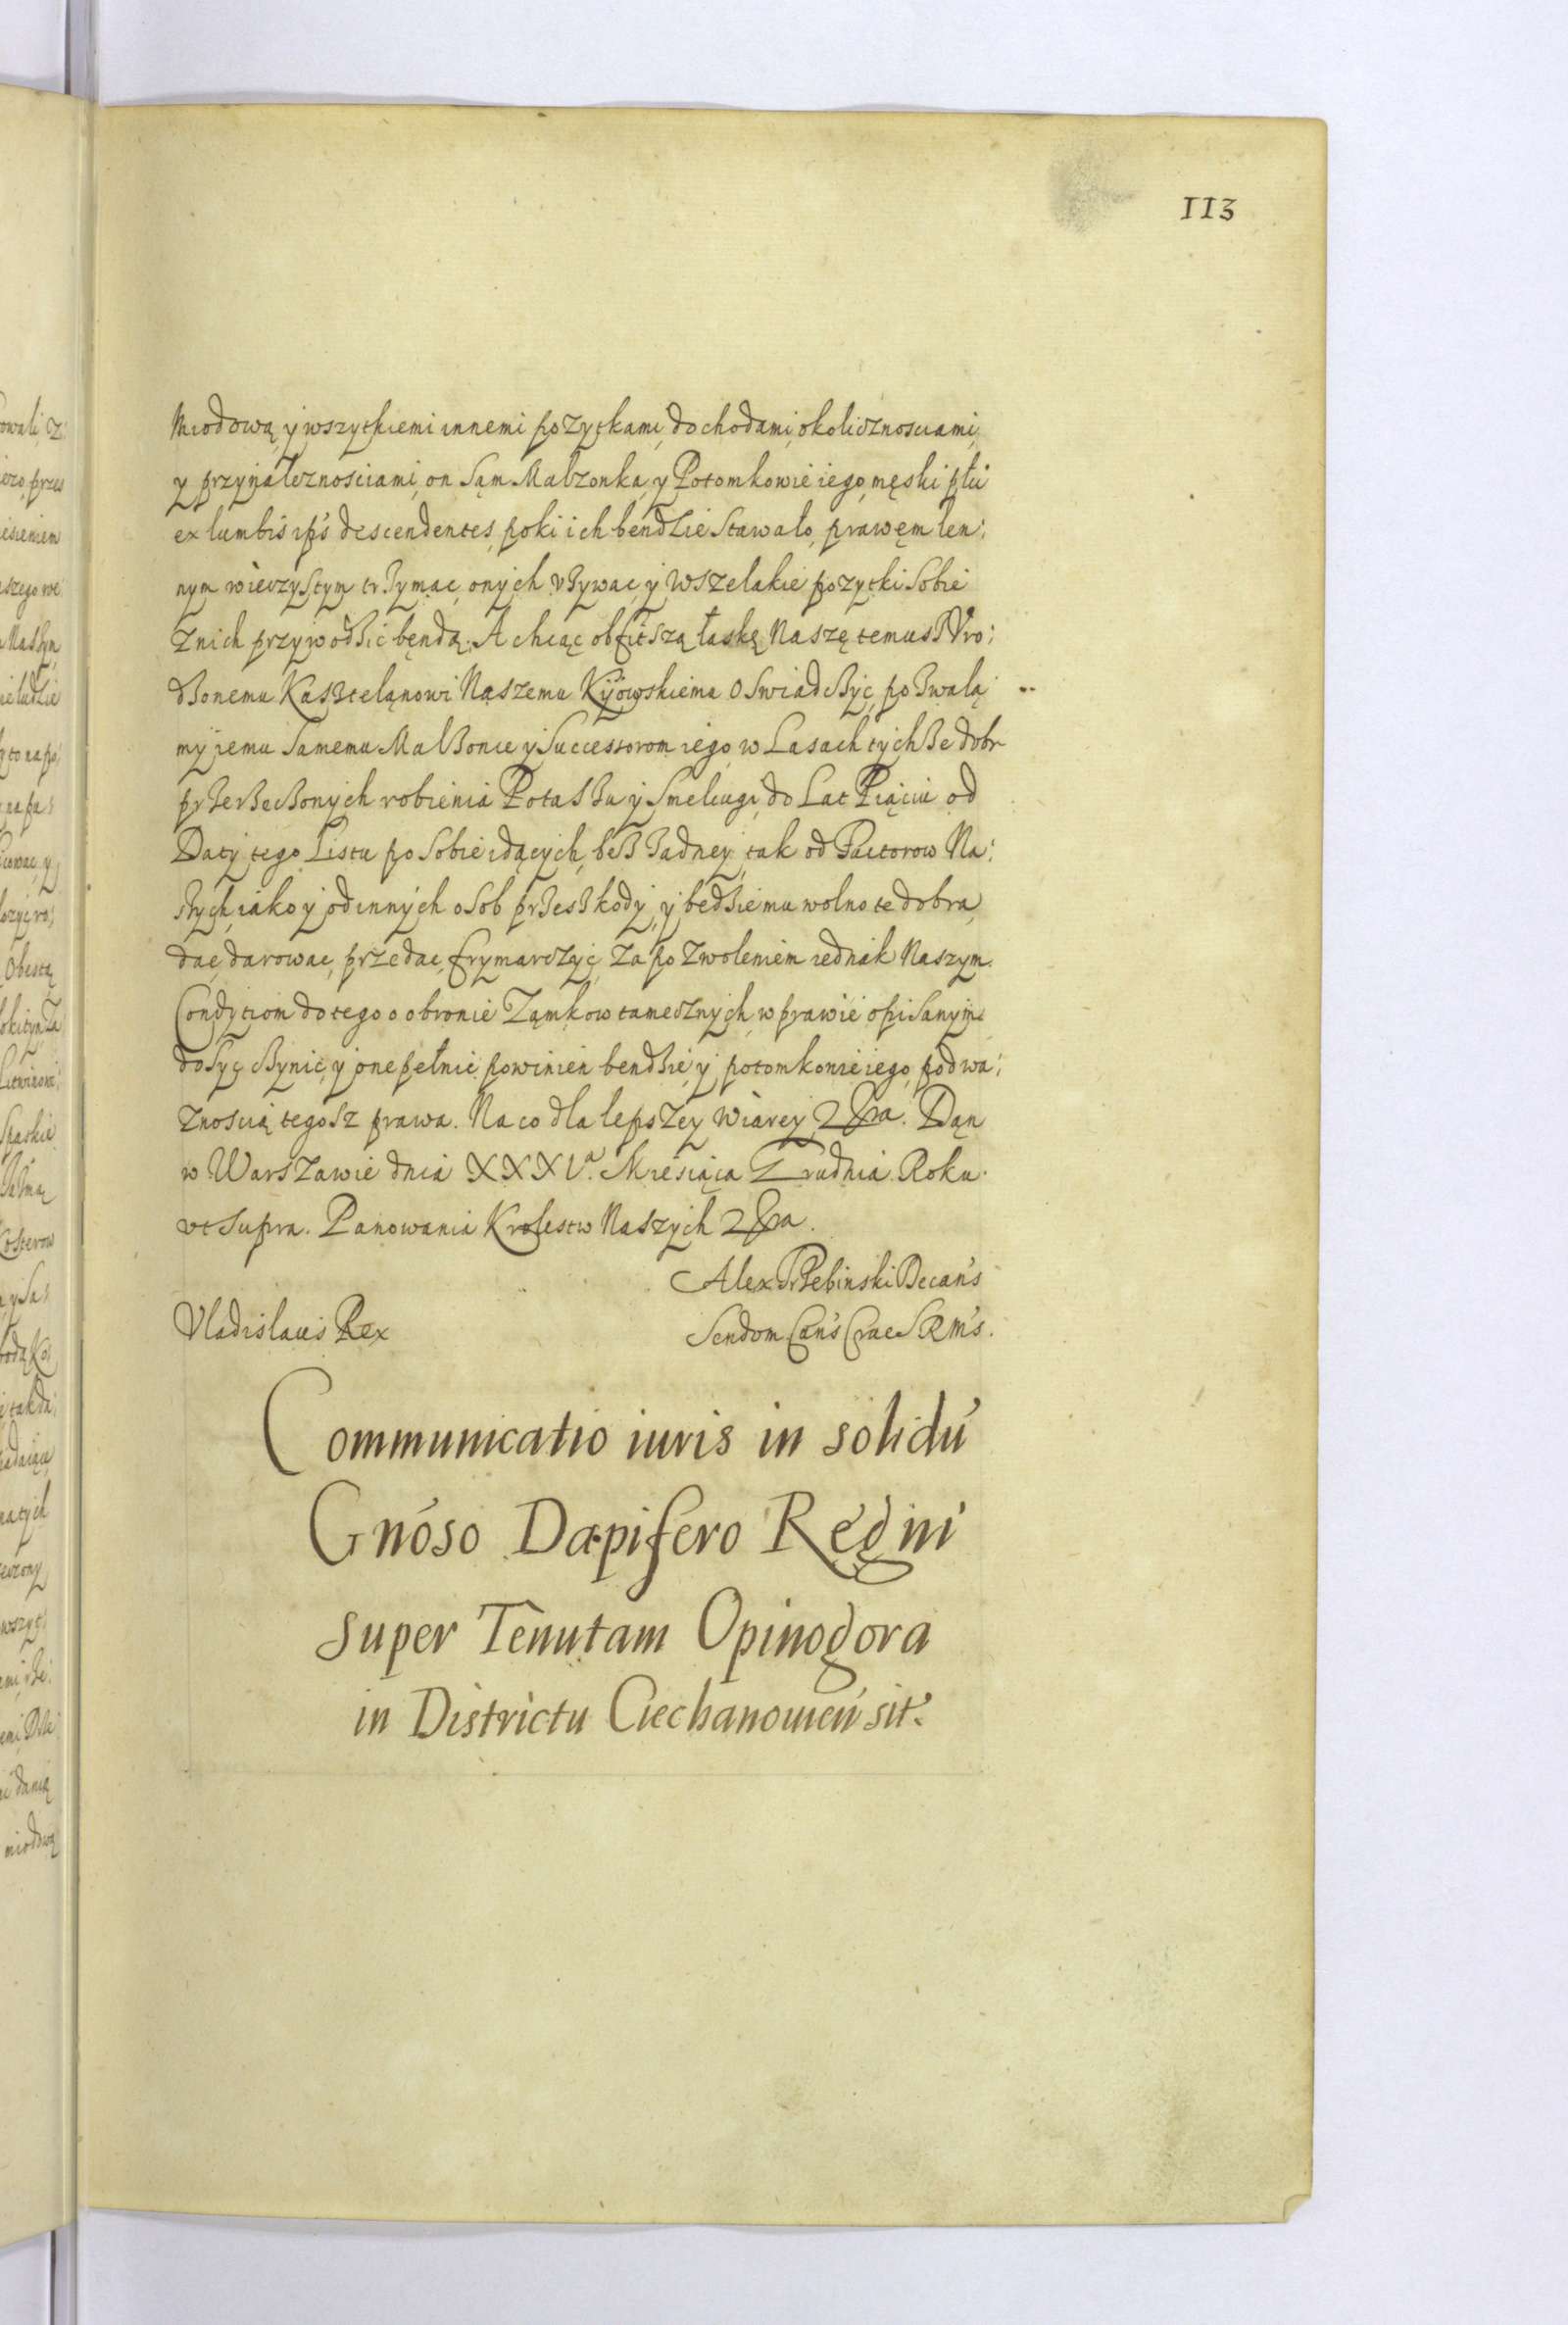 113
miodową y wszytkiemi innemi pozytkami, dochodami, okolicznosciami,
y przynaleznosciami, on sąm Malzonka, y Potomkowie iego, męski płci
ex lumbis ip's descendentes, poki ich bendzie stawało, prawęm len:
nym wieczystym trzymac, onych vzywac, y wszelakie pozytki sobie
z nich przywodzic będą. A chcąc obfitszą łaskę Naszę temusz Vro:
dzonemu Kaszteląnowi Naszemu Kÿowskiemu oswiadczyc, pozwalą
my jemu samemu Malzonce y Successorom iego, w Lasach tychze dobr
przerzeczonych robienia Potaszu y Smelcugi, do Lat Piąciu od
Daty tego Listu po sobie idących, besz zadney, tak od Factorow Na:
szych, iako y od innych osob przeszkody, y bedzie mu wolno te dobra,
dac, darowac, przedac, frymarczyc, za pozwoleniem iednak Naszym.
Condytiom do tego o obronie Ząmkow tamecznych, w prawie opisanym
dosyc czynic, y one pełnic powinien bendzie, y potomkowie iego, pod wa:
znoscią tegosz prawa. Na co dla lepszey wiarey, &a. Dąn
w Warszawie dnia XXXI.a Miesiąca Grudnia Roku
vt supra. Panowania Krolestw Naszych &a.
Alex Trzebinski Decan's
Vladislaus Rex
Sendom Can's Crac S R M's.
Communicatio iuris in solidu'
Gnóso Dapifero Regni
super Tenutam Opinogora
in Districtu Ciechanouien' sit.
miodową